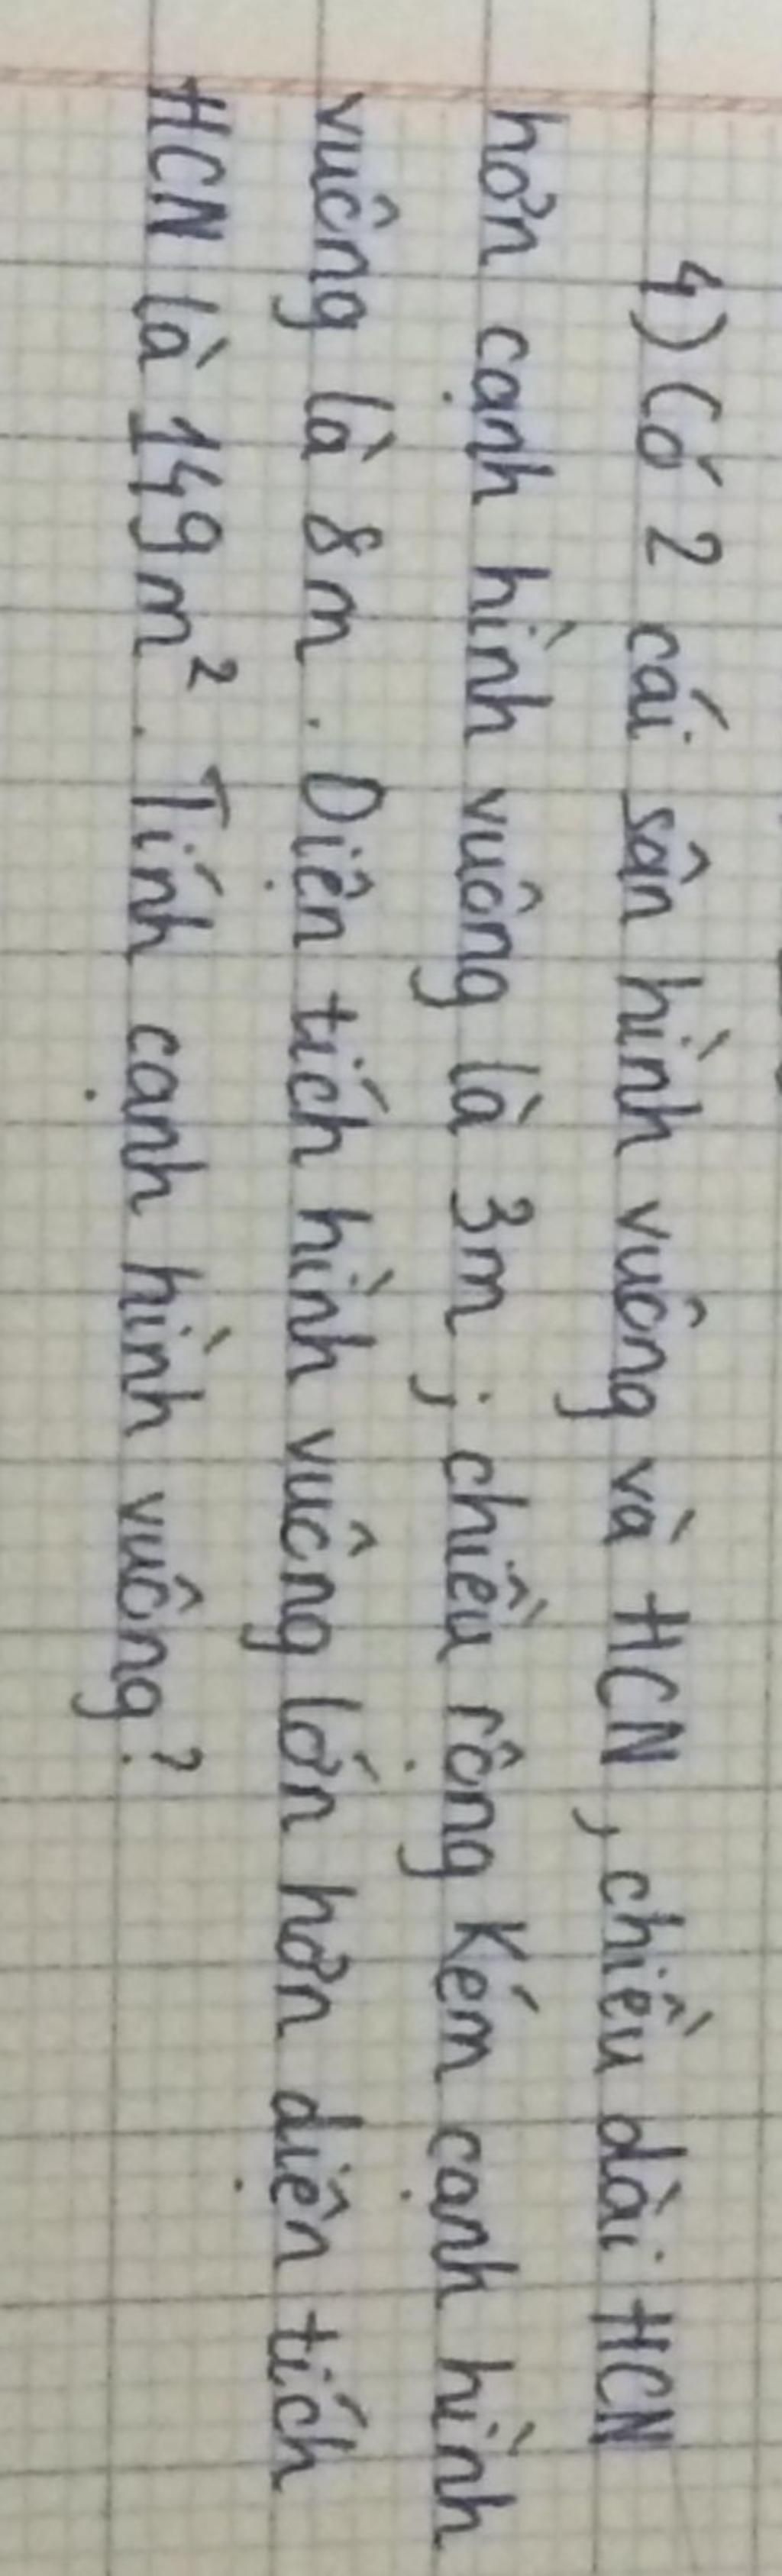 4) Có 2 cái sân hình vuông và HCN, chiều dài HCN
hơn cạnh hình vuông là 3m; chiều rộng kém cạnh hình
vuông là 8m. Diện tích hình vuông lớn hơn diện tích
HCN là 149m². Tính cạnh hình vuông?